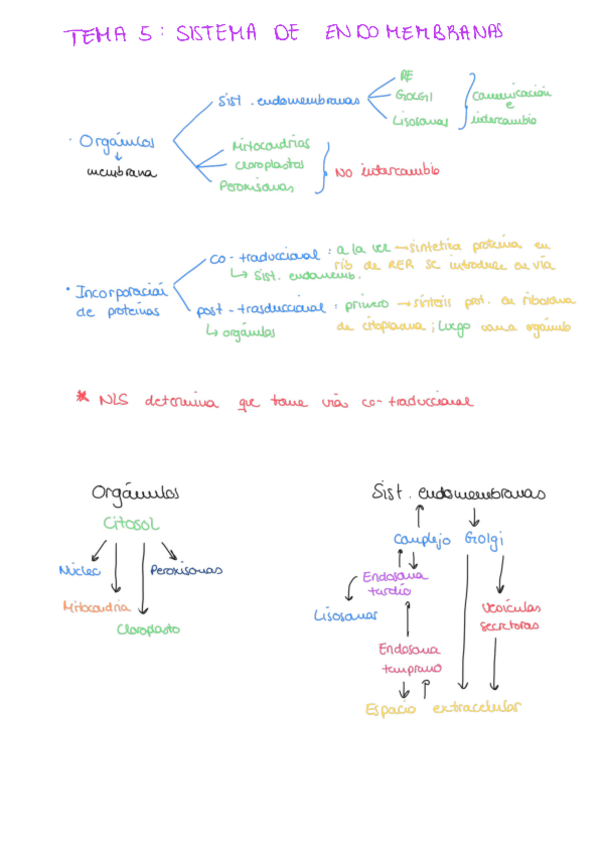 TEMA 5: SISTEMA DE ENDOMEMBRANAS
· Orgánulos
↓
membrana
Sist. endomembranas
RE
GOLGI
Lisosomas
comunicación
e
intercambio
Mitocondrias
cloroplastos
Peroxisomas
No intercambio
• Incorporación
de proteínas
co-traduccional: a la vez → sintetiza proteína en
rib de RER se introduce en vía
↳ Sist. endomemb.
post-trasduccional: primero → síntesis prot. en ribosoma
↳ orgánulos
de citoplasma; luego orgánulo
* NLS determina que tome vía co-traduccional
Orgánulos
Citosol
Núcleo
Peroxisomas
Mitocondria
Cloroplasto
Sist. endomembranas
Complejo Golgi
Endosoma
tardío
Lisosomas
Vesículas
secretoras
Endosoma
temprano
Espacio extracelular